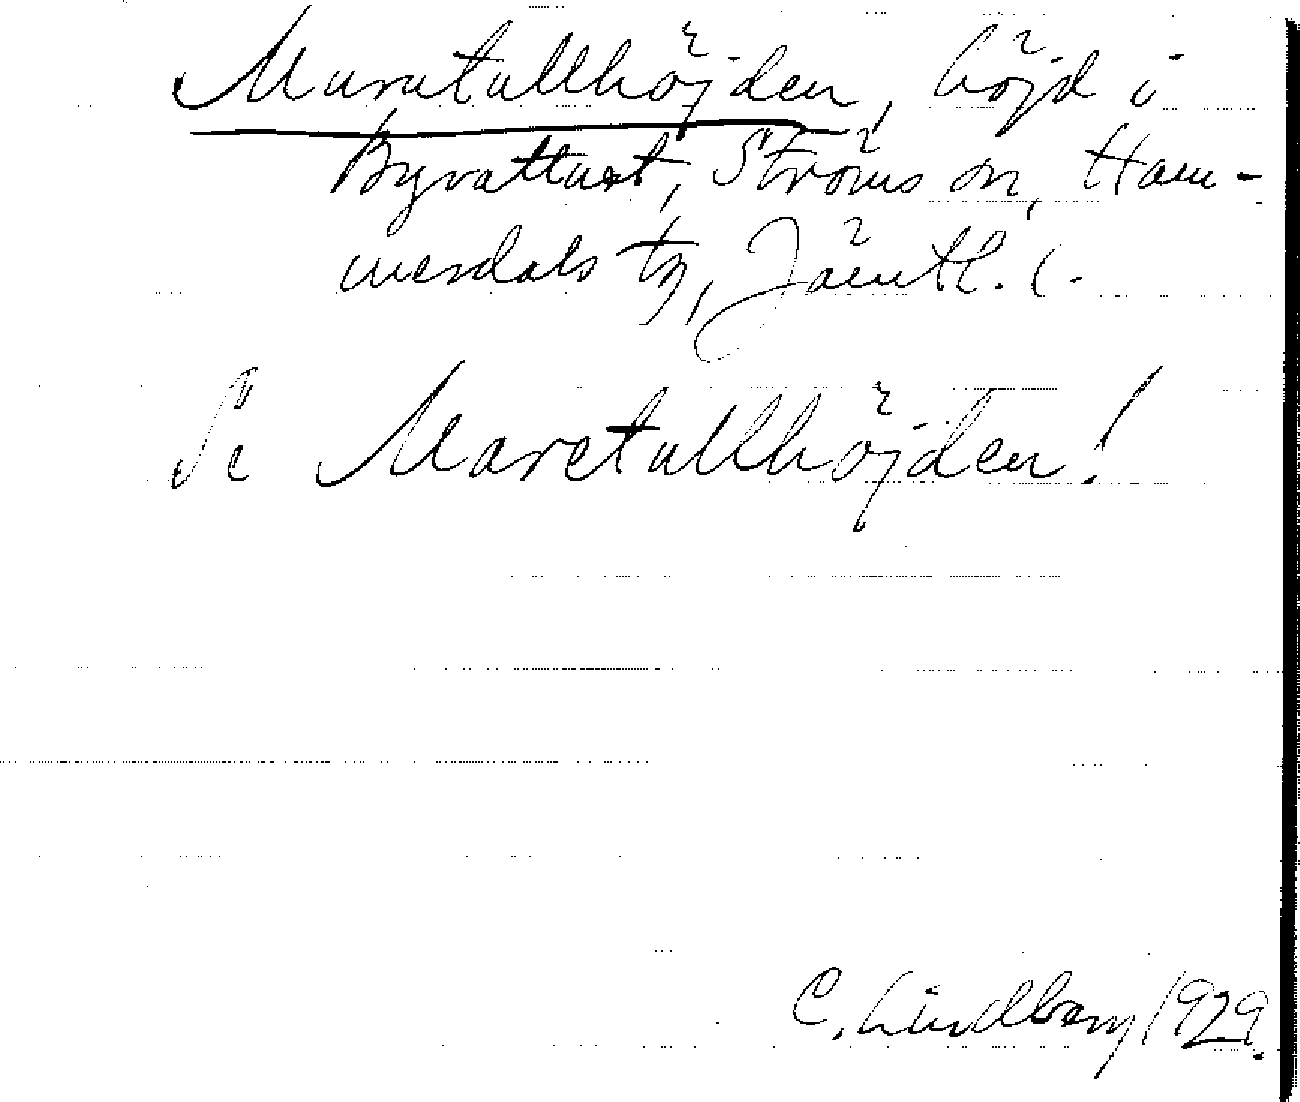 Muretallhöjden, höjd i
Byvattnet, Ströms sn, Ham-
merdals tg, Jämtl. l.
Se Maretallhöjden!
C. Lindberg 1929.